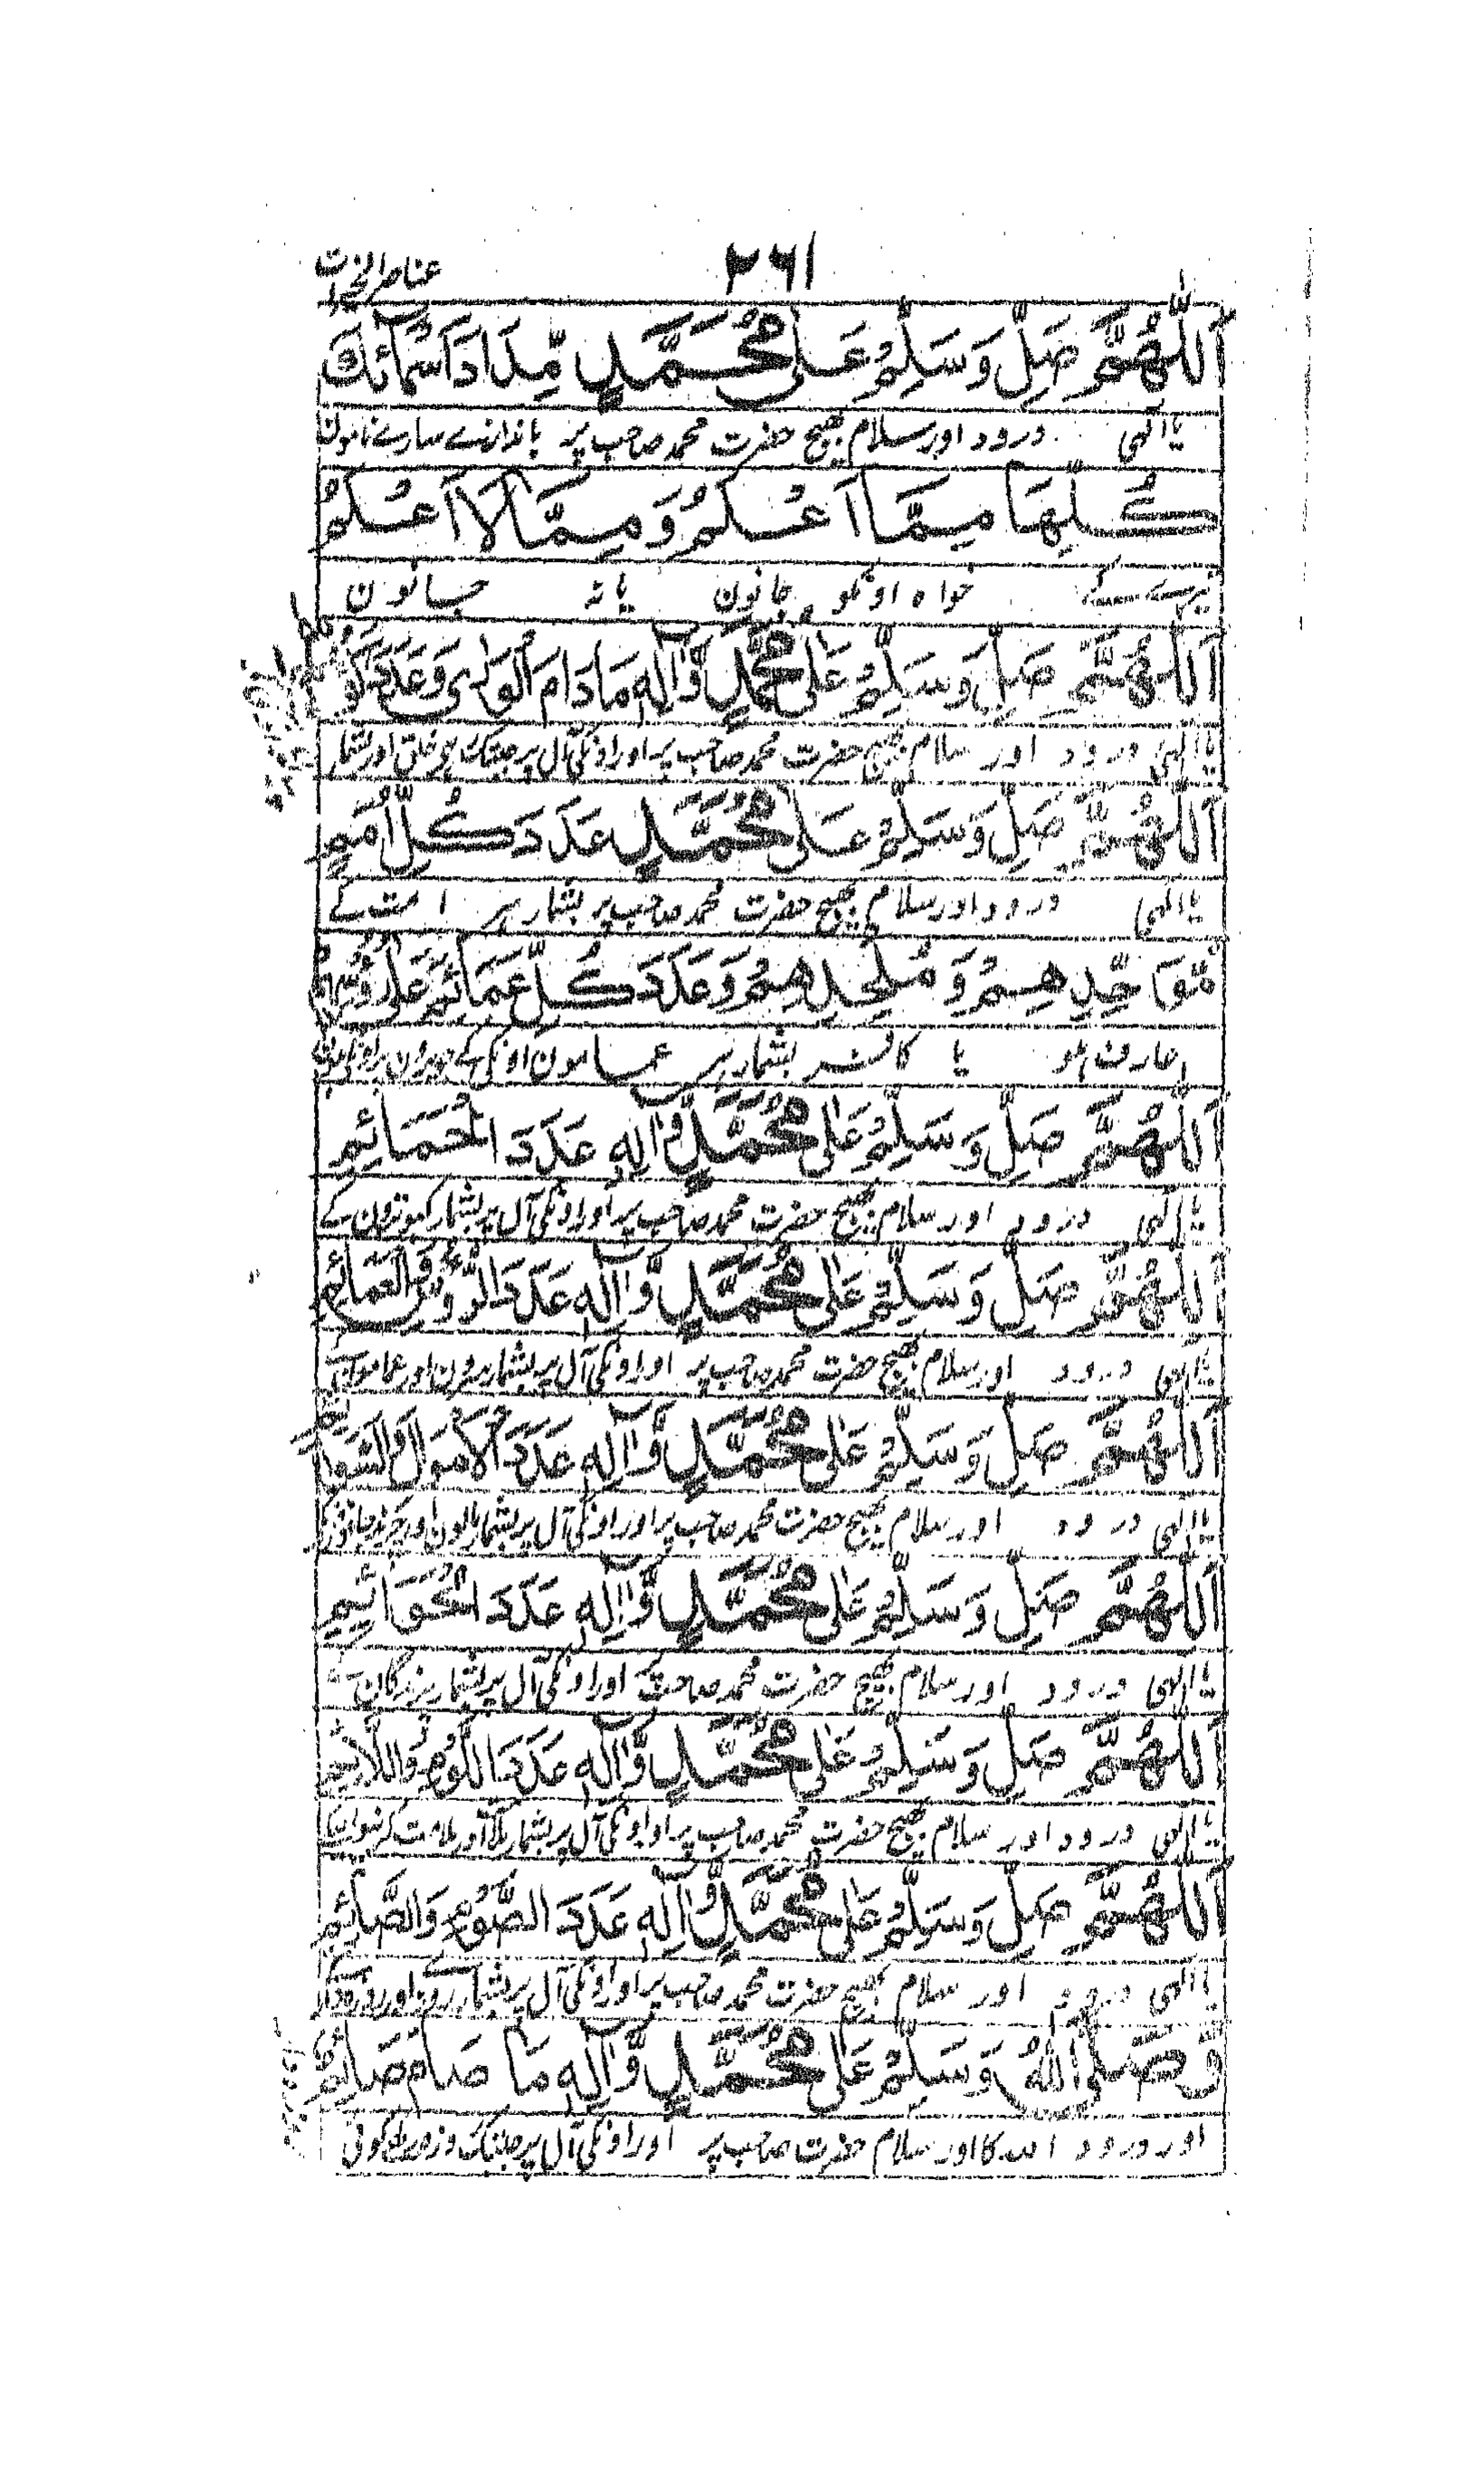 عناصر الخيرات
٢٦١
اَللّٰهُمَّ صَلِّ وَسَلِّمْ عَلٰى مُحَمَّدٍ مِّدَادَ اَسْمَائِكَ
یا الٰہی درود اور سلام بھیج حضرت محمد صاحب پر باندازے سارے نامون
كُلِّهَا مِمَّا اَعْلَمُ وَمِمَّا لَا اَعْلَمُ
تیرے کے خواہ اونکو جانون یا نہ جانون
اَللّٰهُمَّ صَلِّ وَسَلِّمْ عَلٰى مُحَمَّدٍ وَّاٰلِهٖ مَا دَامَ الْوَرٰى وَعَدَدَ
یا الٰہی درود اور سلام بھیج حضرت محمد صاحب پر اور اونکی آل پر جبتک ہی خلق اور بشمار
اَللّٰهُمَّ صَلِّ وَسَلِّمْ عَلٰى مُحَمَّدٍ عَدَدَ كُلِّ اُمَمٍ
یا الٰہی درود اور سلام بھیج حضرت محمد صاحب پر بشمار ہر امت کے
مُّوَحِّدِهِمْ وَمُلْحِدِهِمْ وَعَدَدَ كُلِّ عَمَائِمَ عَلٰى رُءُوْسِهِمْ
عارف ہو یا کافر بشمار ہر عمامون اونکی کے
اَللّٰهُمَّ صَلِّ وَسَلِّمْ عَلٰى مُحَمَّدٍ وَّاٰلِهٖ عَدَدَ الْحَمَائِمِ
یا الٰہی درود اور سلام بھیج حضرت محمد صاحب پر اور اونکی آل پر بشمار کبوترون کے
اَللّٰهُمَّ صَلِّ وَسَلِّمْ عَلٰى مُحَمَّدٍ وَّاٰلِهٖ عَدَدَ الرُّءُوْسِ وَالْعَمَائِمِ
یا الٰہی درود اور سلام بھیج حضرت محمد صاحب پر اور اونکی آل پر بشمار سرون اور عمامون
اَللّٰهُمَّ صَلِّ وَسَلِّمْ عَلٰى مُحَمَّدٍ وَّاٰلِهٖ عَدَدَ الْاَمْوَالِ وَالسَّوَائِمِ
یا الٰہی درود اور سلام بھیج حضرت محمد صاحب پر اور اونکی آل پر بشمار مالون اور
اَللّٰهُمَّ صَلِّ وَسَلِّمْ عَلٰى مُحَمَّدٍ وَّاٰلِهٖ عَدَدَ الْحَوَائِمِ
یا الٰہی درود اور سلام بھیج حضرت محمد صاحب اور اونکی آل پر بشمار
اَللّٰهُمَّ صَلِّ وَسَلِّمْ عَلٰى مُحَمَّدٍ وَّاٰلِهٖ عَدَدَ اللَّوْمِ وَاللَّائِمِ
یا الٰہی درود اور سلام بھیج حضرت محمد صاحب پر اور اونکی آل پر بشمار ملامت اور ملامت
اَللّٰهُمَّ صَلِّ وَسَلِّمْ عَلٰى مُحَمَّدٍ وَّاٰلِهٖ عَدَدَ الصَّوْمِ وَالصَّائِمِ
یا الٰہی درود اور سلام بھیج حضرت محمد صاحب پر اور اونکی آل پر بشمار روزے اور
وَصَلَّى اللّٰهُ وَسَلَّمَ عَلٰى مُحَمَّدٍ وَّاٰلِهٖ مَا صَامَ صَائِمٌ
اور درود اللہ کا اور سلام حضرت صاحب پر اور اونکی آل پر جبتک روزہ رکھے کوئی